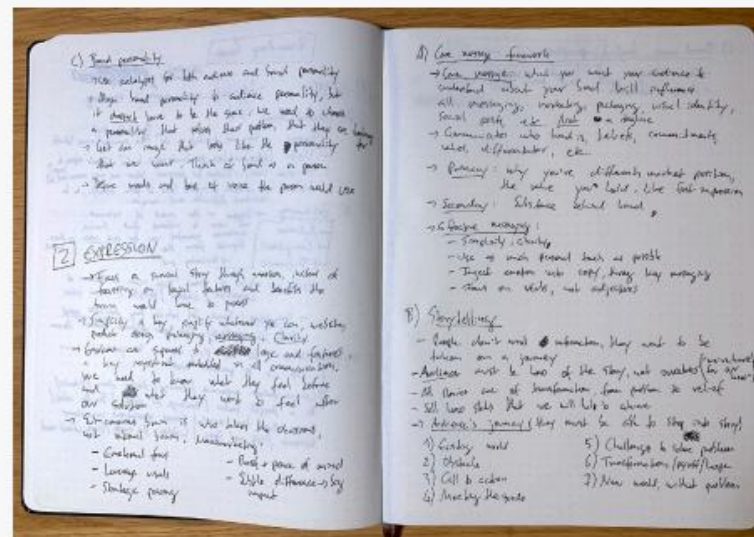 C) Brand personality
→ Use archetypes for both audience and brand personality
→ Align brand personality to audience personality, but
it doesn't have to be the same. We need to choose
a personality that solves their problem, that they are
→ Get an image that looks like the personality for
that we want. Think of brand as a person
→ Define words and tone of voice the person would use
2 EXPRESSION
→ Focus on story through emotion, instead of
focusing on logical features and benefits the
brain would have to process
→ Simplicity is key, simplify whatever you can, website,
product design, packaging, messaging. Clarity
→ Emotions are superior to logic and features,
a key ingredient embedded in all communications,
we need to know what they feel before
and what they want to feel after
our solution
→ brain is who takes the decisions,
not rational brain.
- Emotional
- Leverage visuals
- Strategic
- peace of mind
- Subtle difference → big
impact
A) Core message framework
→ Core message: what you want your audience to
understand about your brand. Will influence
all messaging, marketing, packaging, visual identity,
social posts, etc. Not a tagline
→ Communicates who brand is, beliefs, commitments,
values, differentiator, etc.
→ Primary: why you're different, market position,
the value you hold. Like first impression
→ Secondary: Substance behind brand,
→ Effective messaging:
- Simplicity, clarity
- Use as much personal touch as possible
- Inject emotion into copy, during key messaging
- Focus on verbs, not adjectives
B) Storytelling
- People don't want information, they want to be
taken on a journey
- Audience must be hero of the story, not ourselves
- All stories are of transformation, from problem to relief
- Sell hero that we will help to achieve
→ Audience's journey: they must be able to step into story!
1) world
2) Obstacle
3) Call to action
4) Meeting the guide
5) Challenge to solve problem
6) Transformation
7) New world, without problem